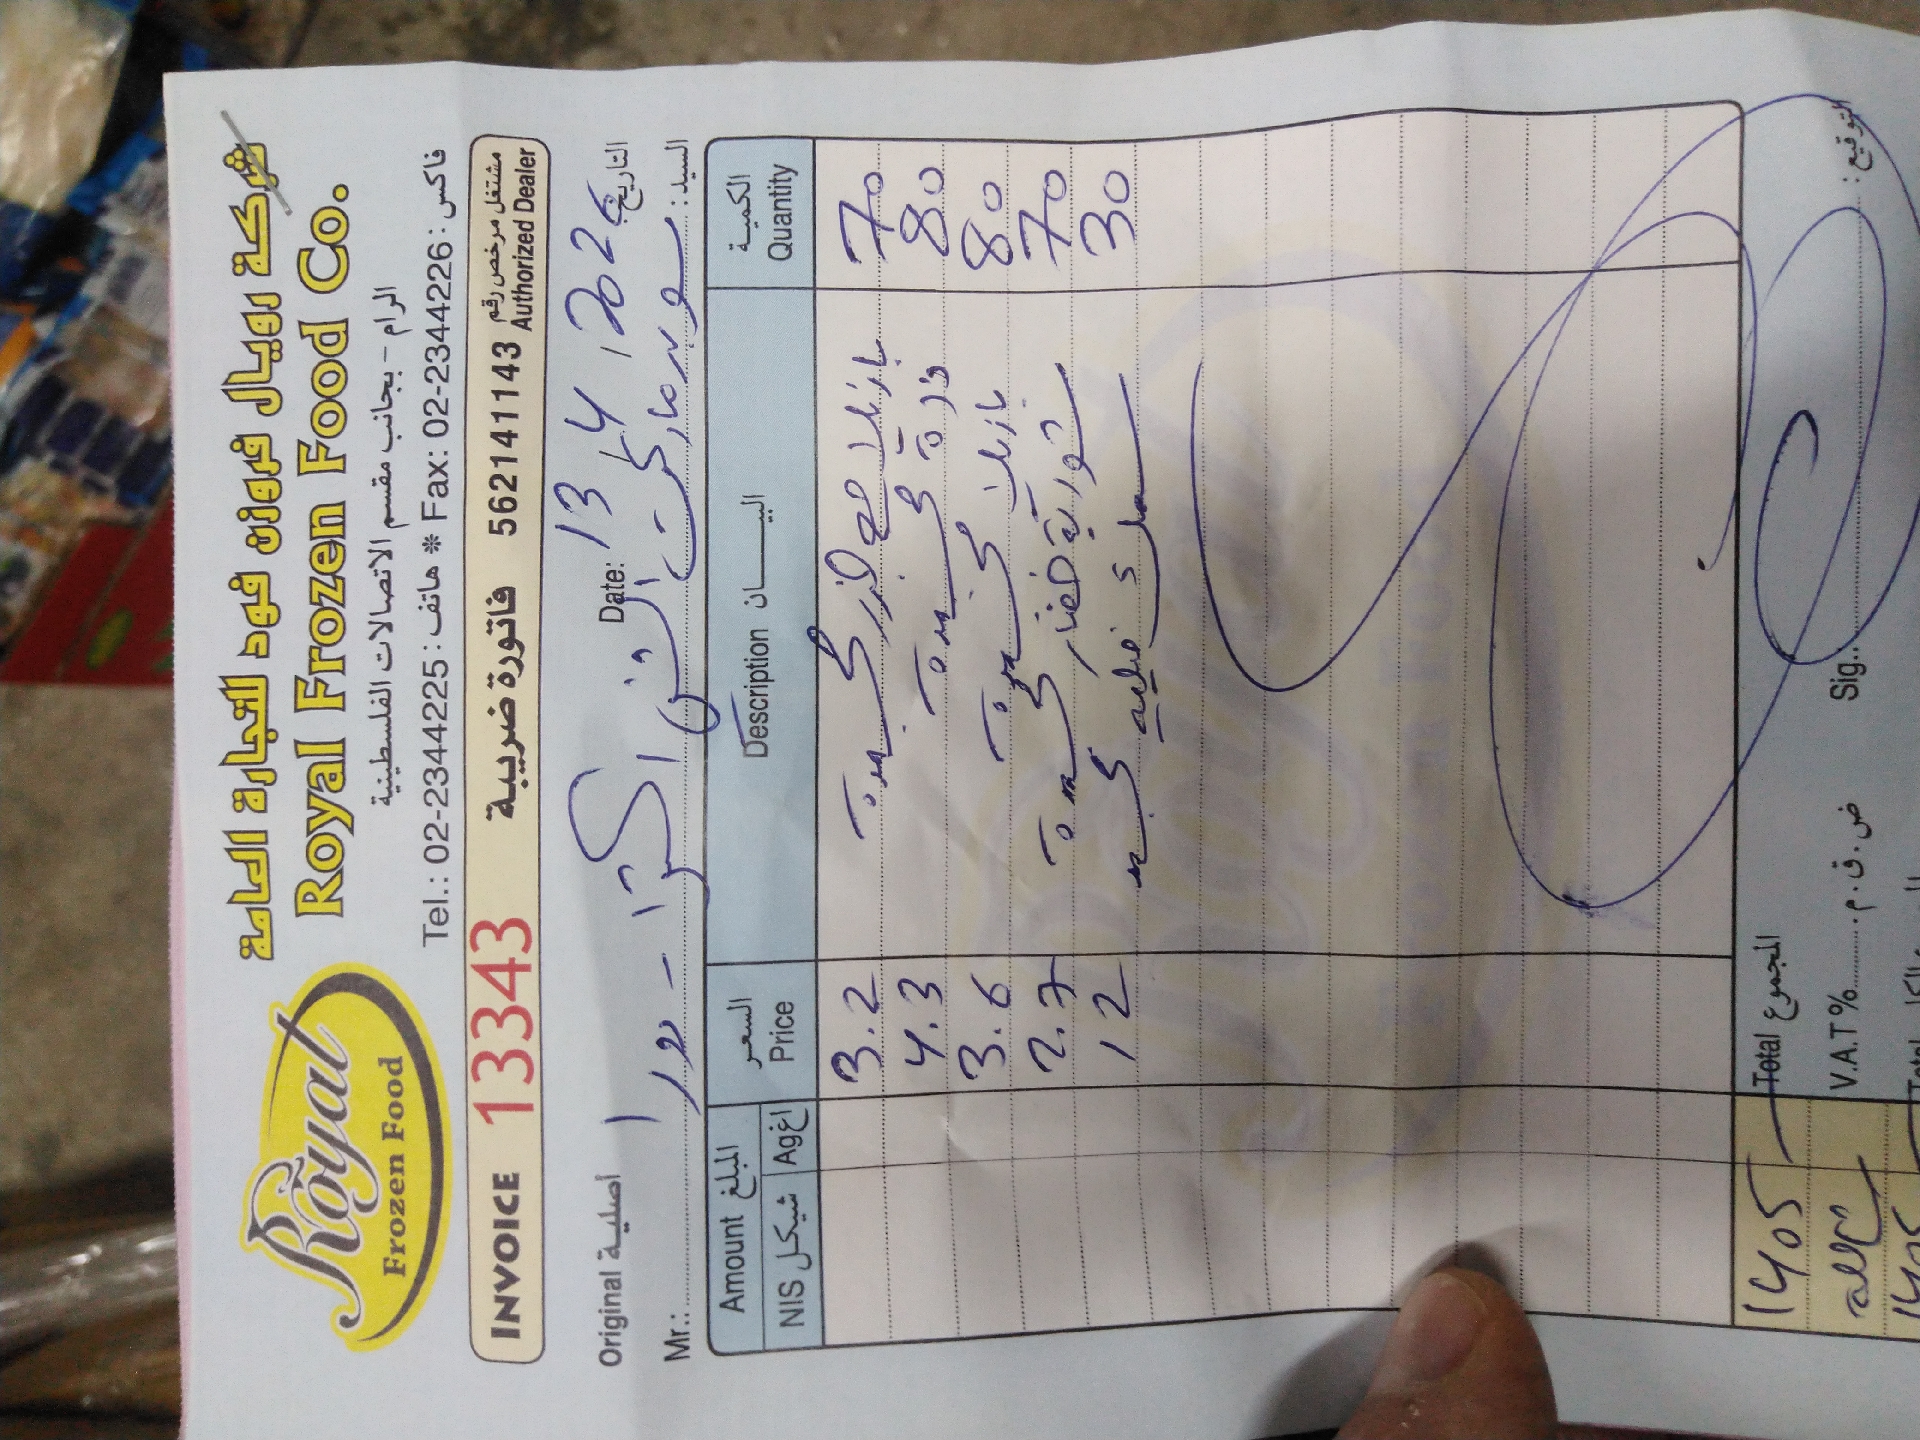 شركة رويال فروزن فود للتجارة العامة
Royal Frozen Food Co.
الرام - بجانب مقسم الاتصالات الفلسطينية
Tel.: 02-2344225 : هاتف * Fax: 02-2344226 : فاكس
Royal
Frozen Food
INVOICE 13343 فاتورة ضريبية 562141143 مشتغل مرخص رقم Authorized Dealer
Original أصلية Date: 13 / 4 / 202 التاريخ
Mr.: السيد:
Amount المبلغ السعر Price البيـــــان Description الكمية Quantity
NIS شيكل Ag اغ
3.2 بازيلا مع جزر كبيرة 70
4.3 ذرة كبيرة 80
3.6 بازيلا كبيرة 80
2.7 خضار كبيرة 70
12 كبير 30
1405 Total المجموع
V.A.T % ض.ق.م. Sig.: التوقيع:
1405 Total